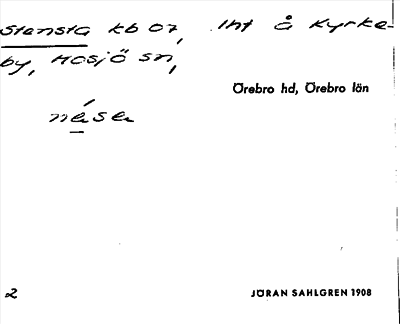 Stensta kb 07, Int å Kyrke-
by, Mosjö sn,
Örebro hd, Örebro län
näsen
2
JÖRAN SAHLGREN 1908